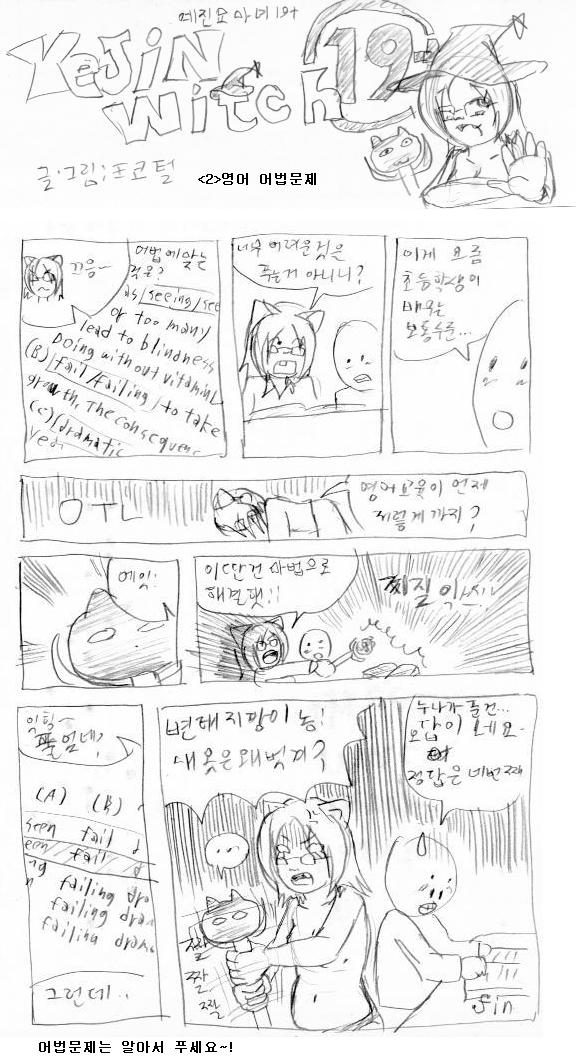 예진요마녀와
Yejin
Witch
19
글·그림;포코털
<2>영어 어법문제
끄응~
어법에 맞는
것은?
as/seeing/see
or too many
lead to blindness
Doing without vitamin
(B) fail/failing/to take
growth. The consequenc
(c)/dramatic
너무 어려운것을
푸는거 아니니?
이게 요즘
초등학생이
배우는
보통수준...
OTL
영어교육이 언제
저렇게까지?
에잇!
이딴건 마법으로
해결햇!!
찌질
(A) (B)
seen fail
een fail
ng failing dra
failing dram
failing drama
그런데..
변태지팡이 놈!
내 옷은 왜 벗겨?
...
짤
짤
짤
누나가 풀건...
오답이네요.
정답은 네번째
fin
어법문제는 알아서 푸세요~!